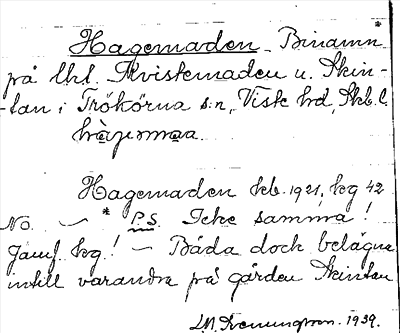 *
Hagemaden. Binamn
på lhl. Kviskemaden u. Skin-
tan i Frökörna sn, Visk hd, Skb. l.
hàgemaa.
Hagemaden hb. 1921, kg 42
No. — * P.S. Icke samma!
Jämf. kg! — Båda dock belägna
intill varandra på gården Skintan
1939.